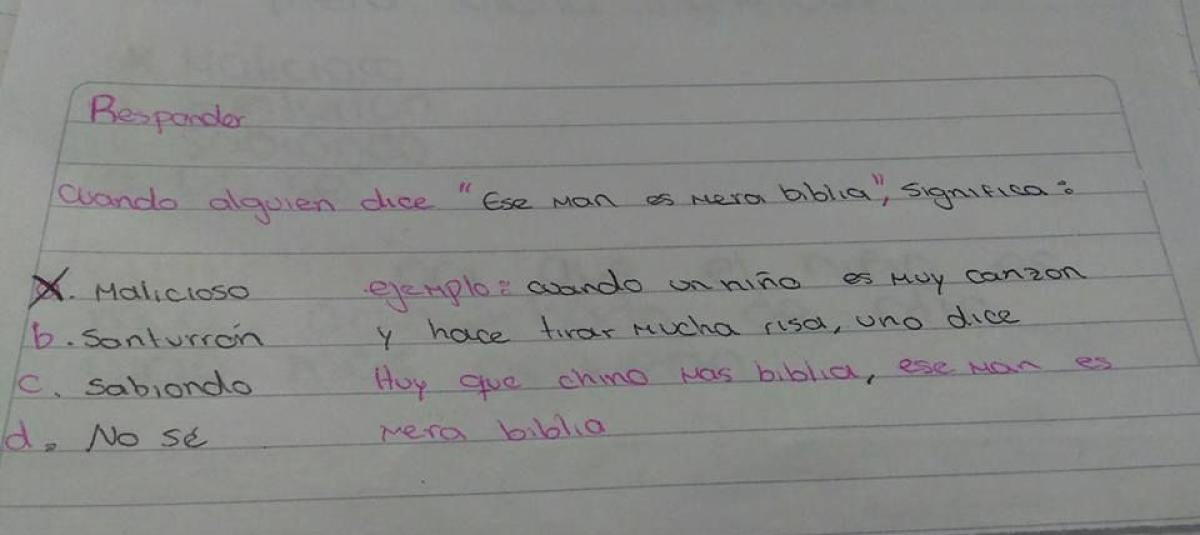 Responder
Cuando alguien dice "Ese man es mera biblia", significa:
X. Malicioso ejemplo: cuando un niño es muy canzon
b. Santurrón y hace tirar mucha risa, uno dice
c. Sabiondo Huy que chino mas biblia, ese man es
d. No sé mera biblia